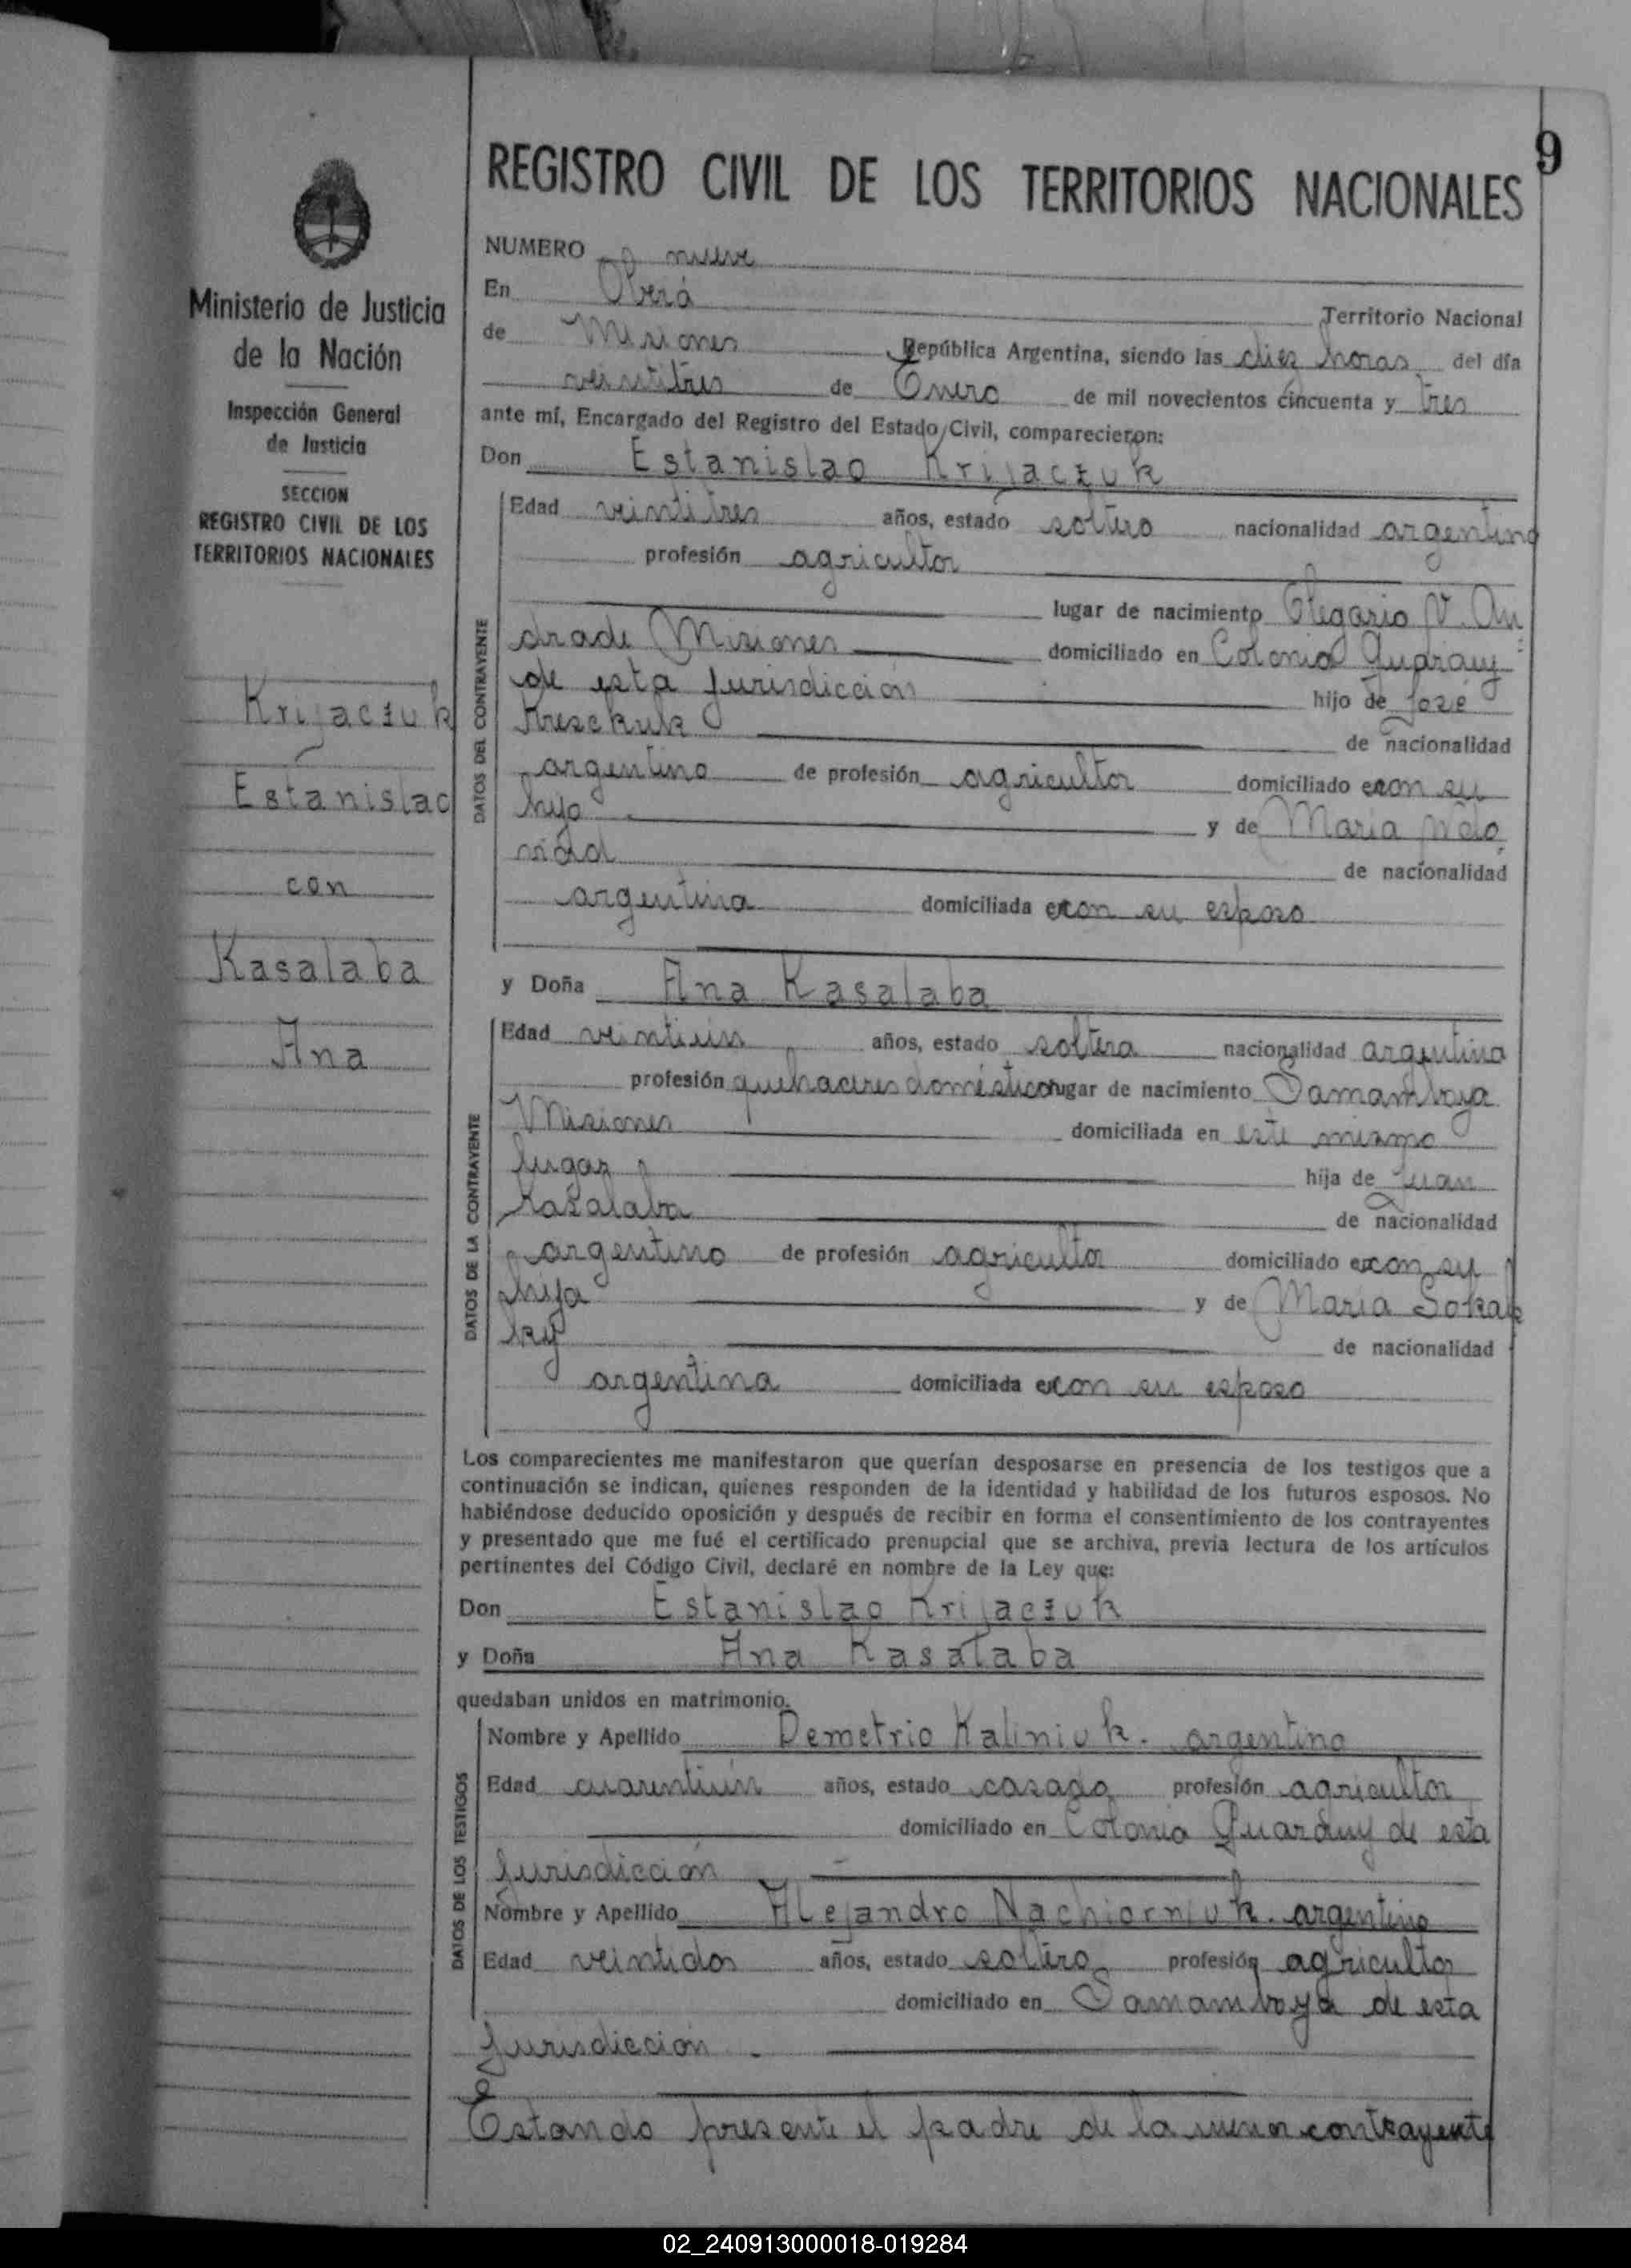 9
REGISTRO CIVIL DE LOS TERRITORIOS NACIONALES
Ministerio de Justicia
de la Nación
Inspección General
de Justicia
SECCION
REGISTRO CIVIL DE LOS
TERRITORIOS NACIONALES
Krijaczuk
Estanislao
con
Kasalaba
Ana
NUMERO nueve
En Oberá Territorio Nacional
de Misiones República Argentina, siendo las diez horas del día
veintitres de Enero de mil novecientos cincuenta y tres
ante mí, Encargado del Registro del Estado Civil, comparecieron:
Don Estanislao Krijaczuk
DATOS DEL CONTRAYENTE
Edad veintitres años, estado soltero nacionalidad argentino
profesión agricultor
lugar de nacimiento Olegario V. An
drade Misiones domiciliado en Colonia Guarany
de esta Jurisdicción hijo de José
Kreschuk de nacionalidad
argentino de profesión agricultor domiciliado en con su
hijo y de Maria
de nacionalidad
argentina domiciliada en con su esposo
y Doña Ana Kasalaba
DATOS DE LA CONTRAYENTE
Edad veintiún años, estado soltera nacionalidad argentina
profesión quehaceres domésticos lugar de nacimiento Samambaya
Misiones domiciliada en este mismo
lugar hija de Juan
Kasalaba de nacionalidad
argentino de profesión agricultor domiciliado en con su
hija y de Maria
de nacionalidad
argentina domiciliada en con su esposo
Los comparecientes me manifestaron que querían desposarse en presencia de los testigos que a
continuación se indican, quienes responden de la identidad y habilidad de los futuros esposos. No
habiéndose deducido oposición y después de recibir en forma el consentimiento de los contrayentes
y presentado que me fué el certificado prenupcial que se archiva, previa lectura de los artículos
pertinentes del Código Civil, declaré en nombre de la Ley que:
Don Estanislao Krijaczuk
y Doña Ana Kasalaba
quedaban unidos en matrimonio.
DATOS DE LOS TESTIGOS
Nombre y Apellido Demetrio Kaliniuk. argentino
Edad cuarentiún años, estado casado profesión agricultor
domiciliado en Colonia Guarany de esta
Jurisdicción
Nombre y Apellido Alejandro Nachiorniuk. argentino
Edad veintidos años, estado soltero profesión agricultor
domiciliado en Samambaya de esta
Jurisdicción.
Estando presente el padre de la menor contrayente
02_240913000018-019284